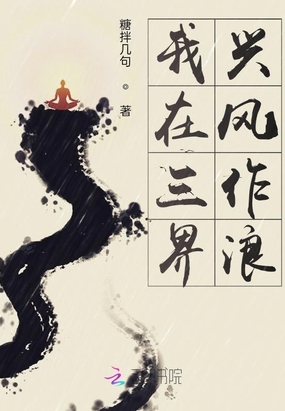 我在三界
兴风作浪
糖拌几句 ◎ 著
书院